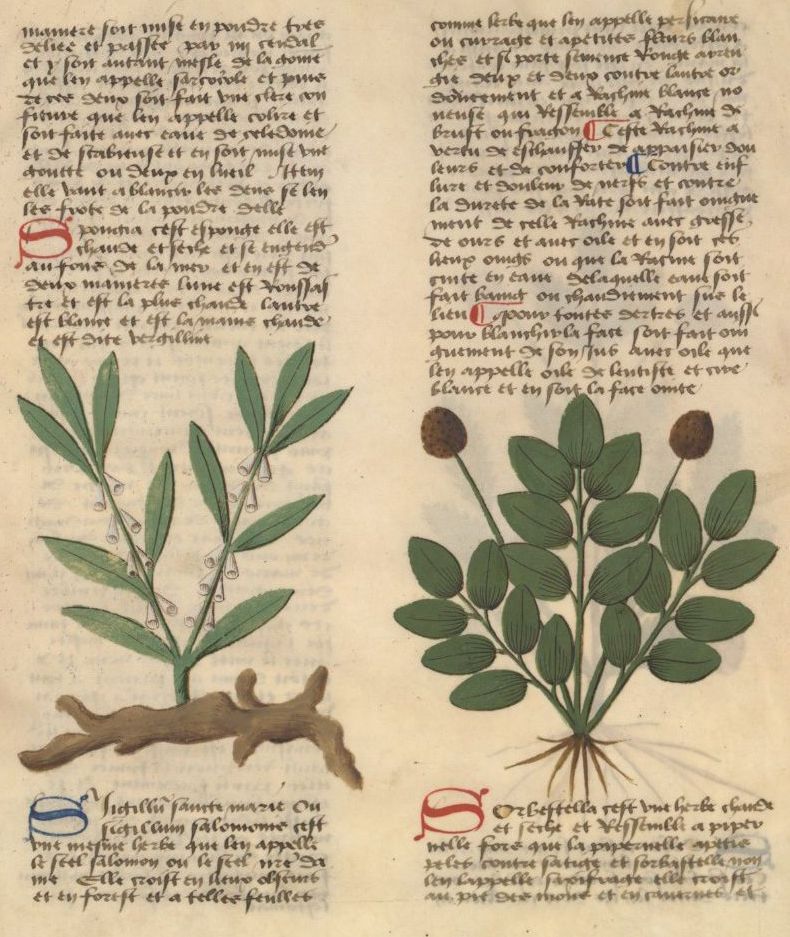 maniere soit mise en pouldre tres
deliee et passee par mi cendal
et y soit autant mesle de la gome
que len appelle sarcocole et puis
de ces deux soit fait vne clere con
fiture que len appelle colire et
soit faite auec eaue de celedome
et de scabieuse et en soit mise vne
goutte ou deux en lueil Item
elle vaut a blanchir les dens se len
les frote de la pouldre delle
Spongia cest esponge elle est
chaude et seche et se engend
au fons de la mer et en est de
deux manieres lune est Roussas
tre et est la plus chaude lautre
est blance et est la mains chaude
et est dite vergilline
Sigillum sancte marie Ou
sigillum salomonis cest
vne mesme herbe que len appelle
le seel salomon ou le seel nre da
me Elle croist en lieux obscurs
et en forest et a telles feulles
comme lerbe que len appelle persicaire
ou curraige et a petites fleurs blan
ches et si porte semence Rouge arren
gie deux et deux contre lautre or
donneement et a Rachine blance no
ueuse qui Ressemble a Rachine de
brust ou fragon Ceste Rachine a
vertu de eschauffer de appaisier dou
leurs et de conforter Contre enf
lure et douleur de nerfs et contre
la durete de la Rate soit fait oingne
ment de celle Rachine auec gresse
de ours et auec oile et en soit ces
lieux oings ou que la Racine soit
cuite en eaue de laquelle eaue soit
fait baing ou chaudiement sus le
lieu pour toutes dertres et aussi
pour blanchir la face soit fait oin
gnement de son Jus auec oile que
len appelle oile de lentisce et cire
blance et en soit la face ointe
Sorbestella cest vne herbe chaude
et seche et Ressemble a piper
nelle fors que la pipernelle a petis
peles contre sa tige et sorbastelle non
len lappelle saxifrage elle croist
au pie des mons et en cauernes et